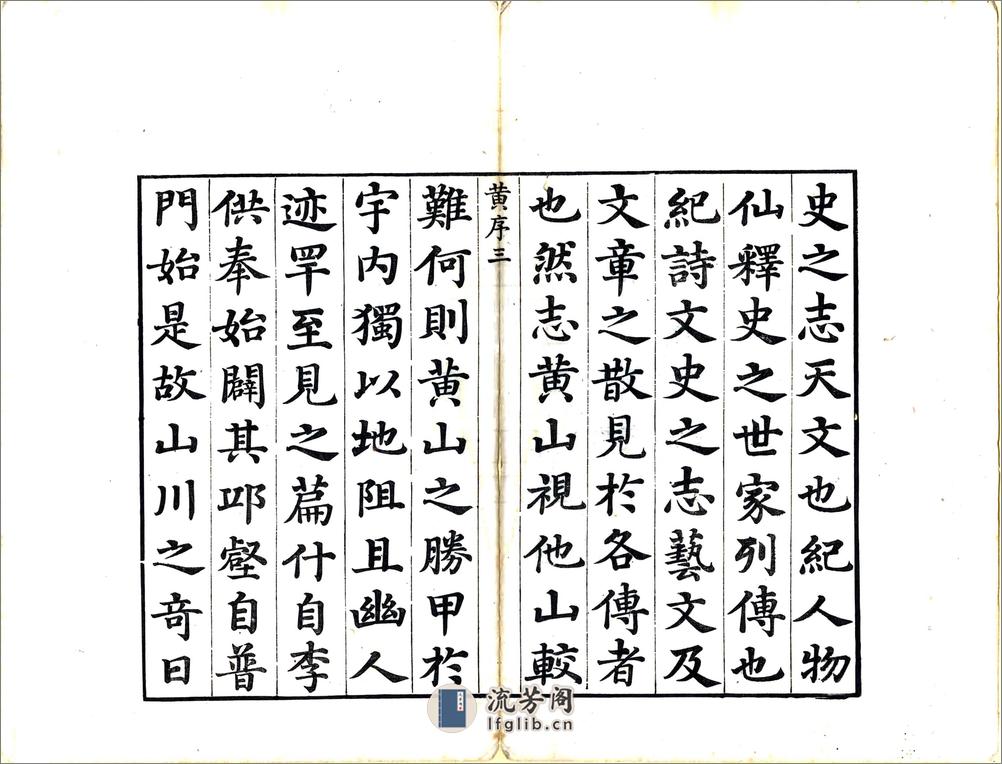 史之志天文也紀人物
仙釋史之世家列傳也
紀詩文史之志藝文及
文章之散見於各傳者
也然志黄山視他山較
黄序三
難何則黄山之勝甲於
宇内獨以地阻且幽人
迹罕至見之篇什自李
供奉始闢其邱壑自普
門始是故山川之奇日
流芳阁
lfglib.cn